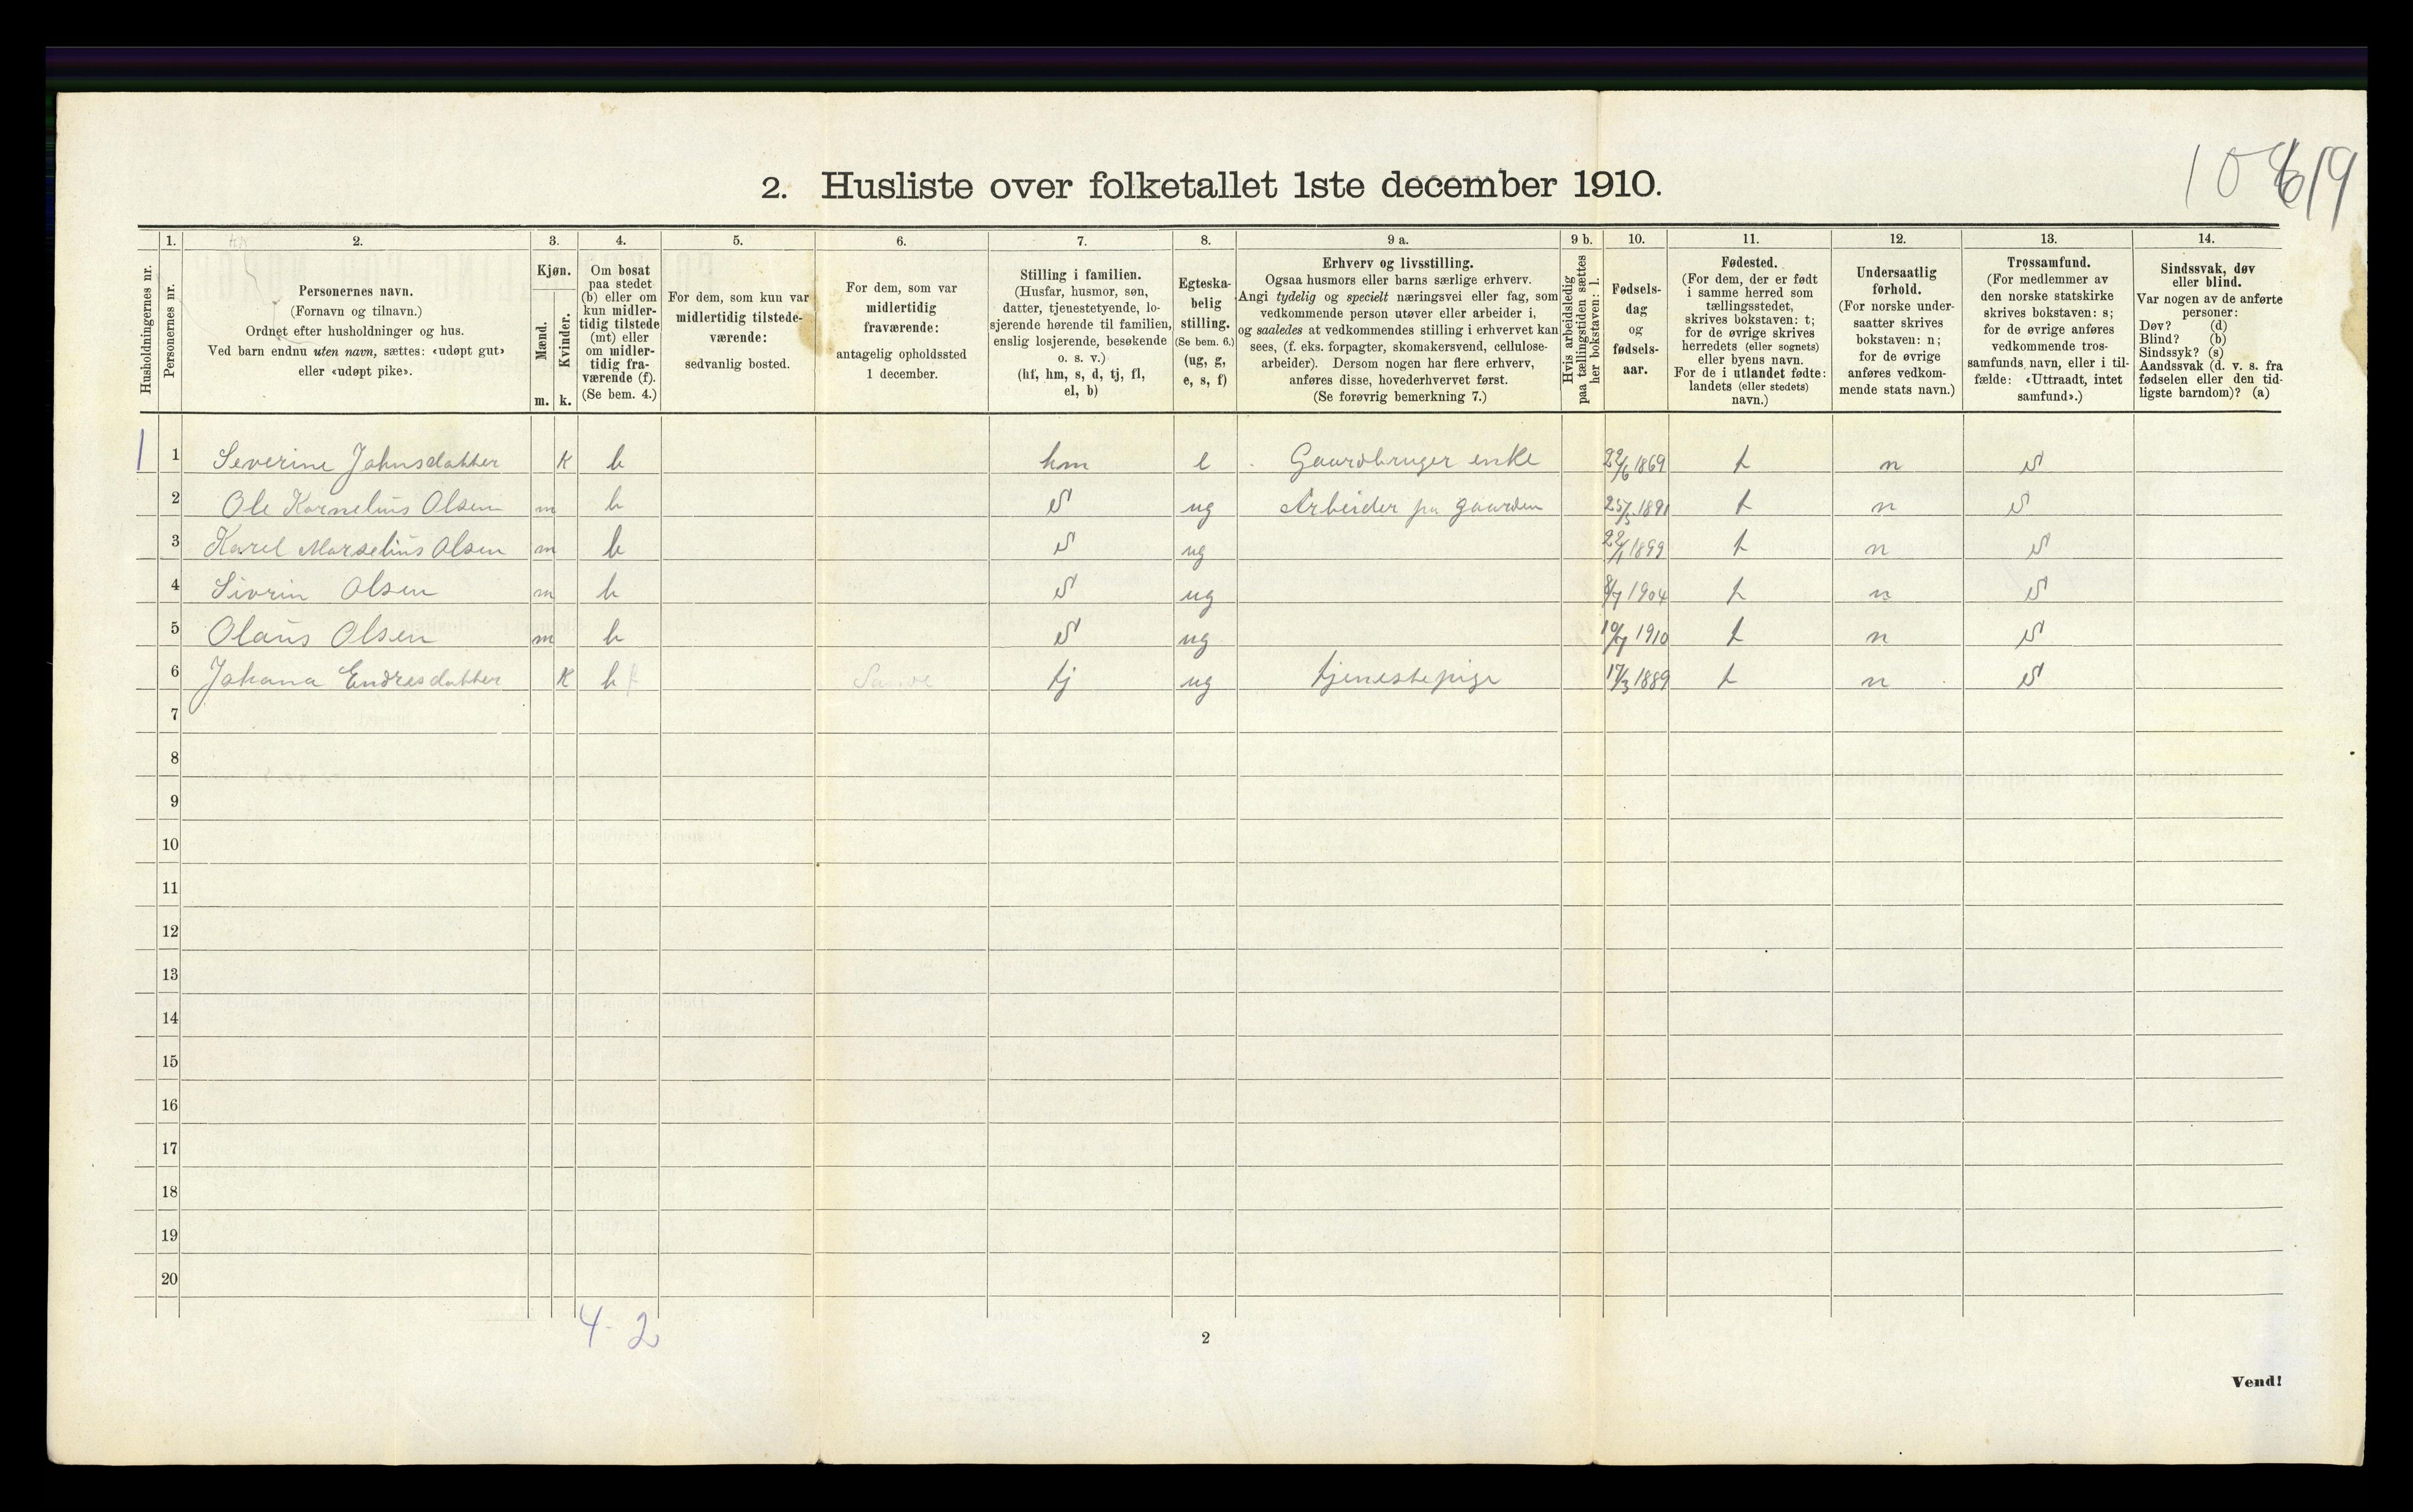 10 619
2. Husliste over folketallet 1ste december 1910.
Husholdningernes nr.
1. Personernes nr.
2. Personernes navn.
(Fornavn og tilnavn.)
Ordnet efter husholdninger og hus.
Ved barn endnu uten navn, sættes: «udøpt gut»
eller «udøpt pike».
3. Kjøn.
Mænd. m.
Kvinder. k.
4. Om bosat
paa stedet
(b) eller om
kun midler-
tidig tilstede
(mt) eller
om midler-
tidig fra-
værende (f).
(Se bem. 4.)
5. For dem, som kun var
midlertidig tilstede-
værende:
sedvanlig bosted.
6. For dem, som var
midlertidig
fraværende:
antagelig opholdssted
1 december.
7. Stilling i familien.
(Husfar, husmor, søn,
datter, tjenestetyende, lo-
sjerende hørende til familien,
enslig losjerende, besøkende
o. s. v.)
(hf, hm, s, d, tj, fl,
el, b)
8. Egteska-
belig
stilling.
(Se bem. 6.)
(ug, g,
e, s, f)
9 a. Erhverv og livsstilling.
Ogsaa husmors eller barns særlige erhverv.
Angi tydelig og specielt næringsvei eller fag, som
vedkommende person utøver eller arbeider i,
og saaledes at vedkommendes stilling i erhvervet kan
sees, (f. eks. forpagter, skomakersvend, cellulose-
arbeider). Dersom nogen har flere erhverv,
anføres disse, hovederhvervet først.
(Se forøvrig bemerkning 7.)
9 b. Hvis arbeidsledig
paa tællingstiden sættes
her bokstaven: l.
10. Fødsels-
dag
og
fødsels-
aar.
11. Fødested.
(For dem, der er født
i samme herred som
tællingsstedet,
skrives bokstaven: t;
for de øvrige skrives
herredets (eller sognets)
eller byens navn.
For de i utlandet fødte:
landets (eller stedets)
navn.)
12. Undersaatlig
forhold.
(For norske under-
saatter skrives
bokstaven: n;
for de øvrige
anføres vedkom-
mende stats navn.)
13. Trossamfund.
(For medlemmer av
den norske statskirke
skrives bokstaven: s;
for de øvrige anføres
vedkommende tros-
samfunds navn, eller i til-
fælde: «Uttraadt, intet
samfund».)
14. Sindssvak, døv
eller blind.
Var nogen av de anførte
personer:
Døv? (d)
Blind? (b)
Sindssyk? (s)
Aandssvak (d. v. s. fra
fødselen eller den tid-
ligste barndom)? (a)
1 1 Severine Johnsdatter K b hm e Gaardbruger enke 22/6 1869 t n S
2 Ole Kornelius Olsen m b S ug Arbeider pa gaarden 25/5 1891 t n S
3 Karel Marselius Olsen m b S ug 22/1 1899 t n S
4 Sivrin Olsen m b S ug 8/7 1904 t n S
5 Olaus Olsen m b S ug 10/7 1910 t n S
6 Johana Endresdatter K b f tj ug tjenestepige 17/3 1889 t n S
7
8
9
10
11
12
13
14
15
16
17
18
19
20
4-2
2
Vend!